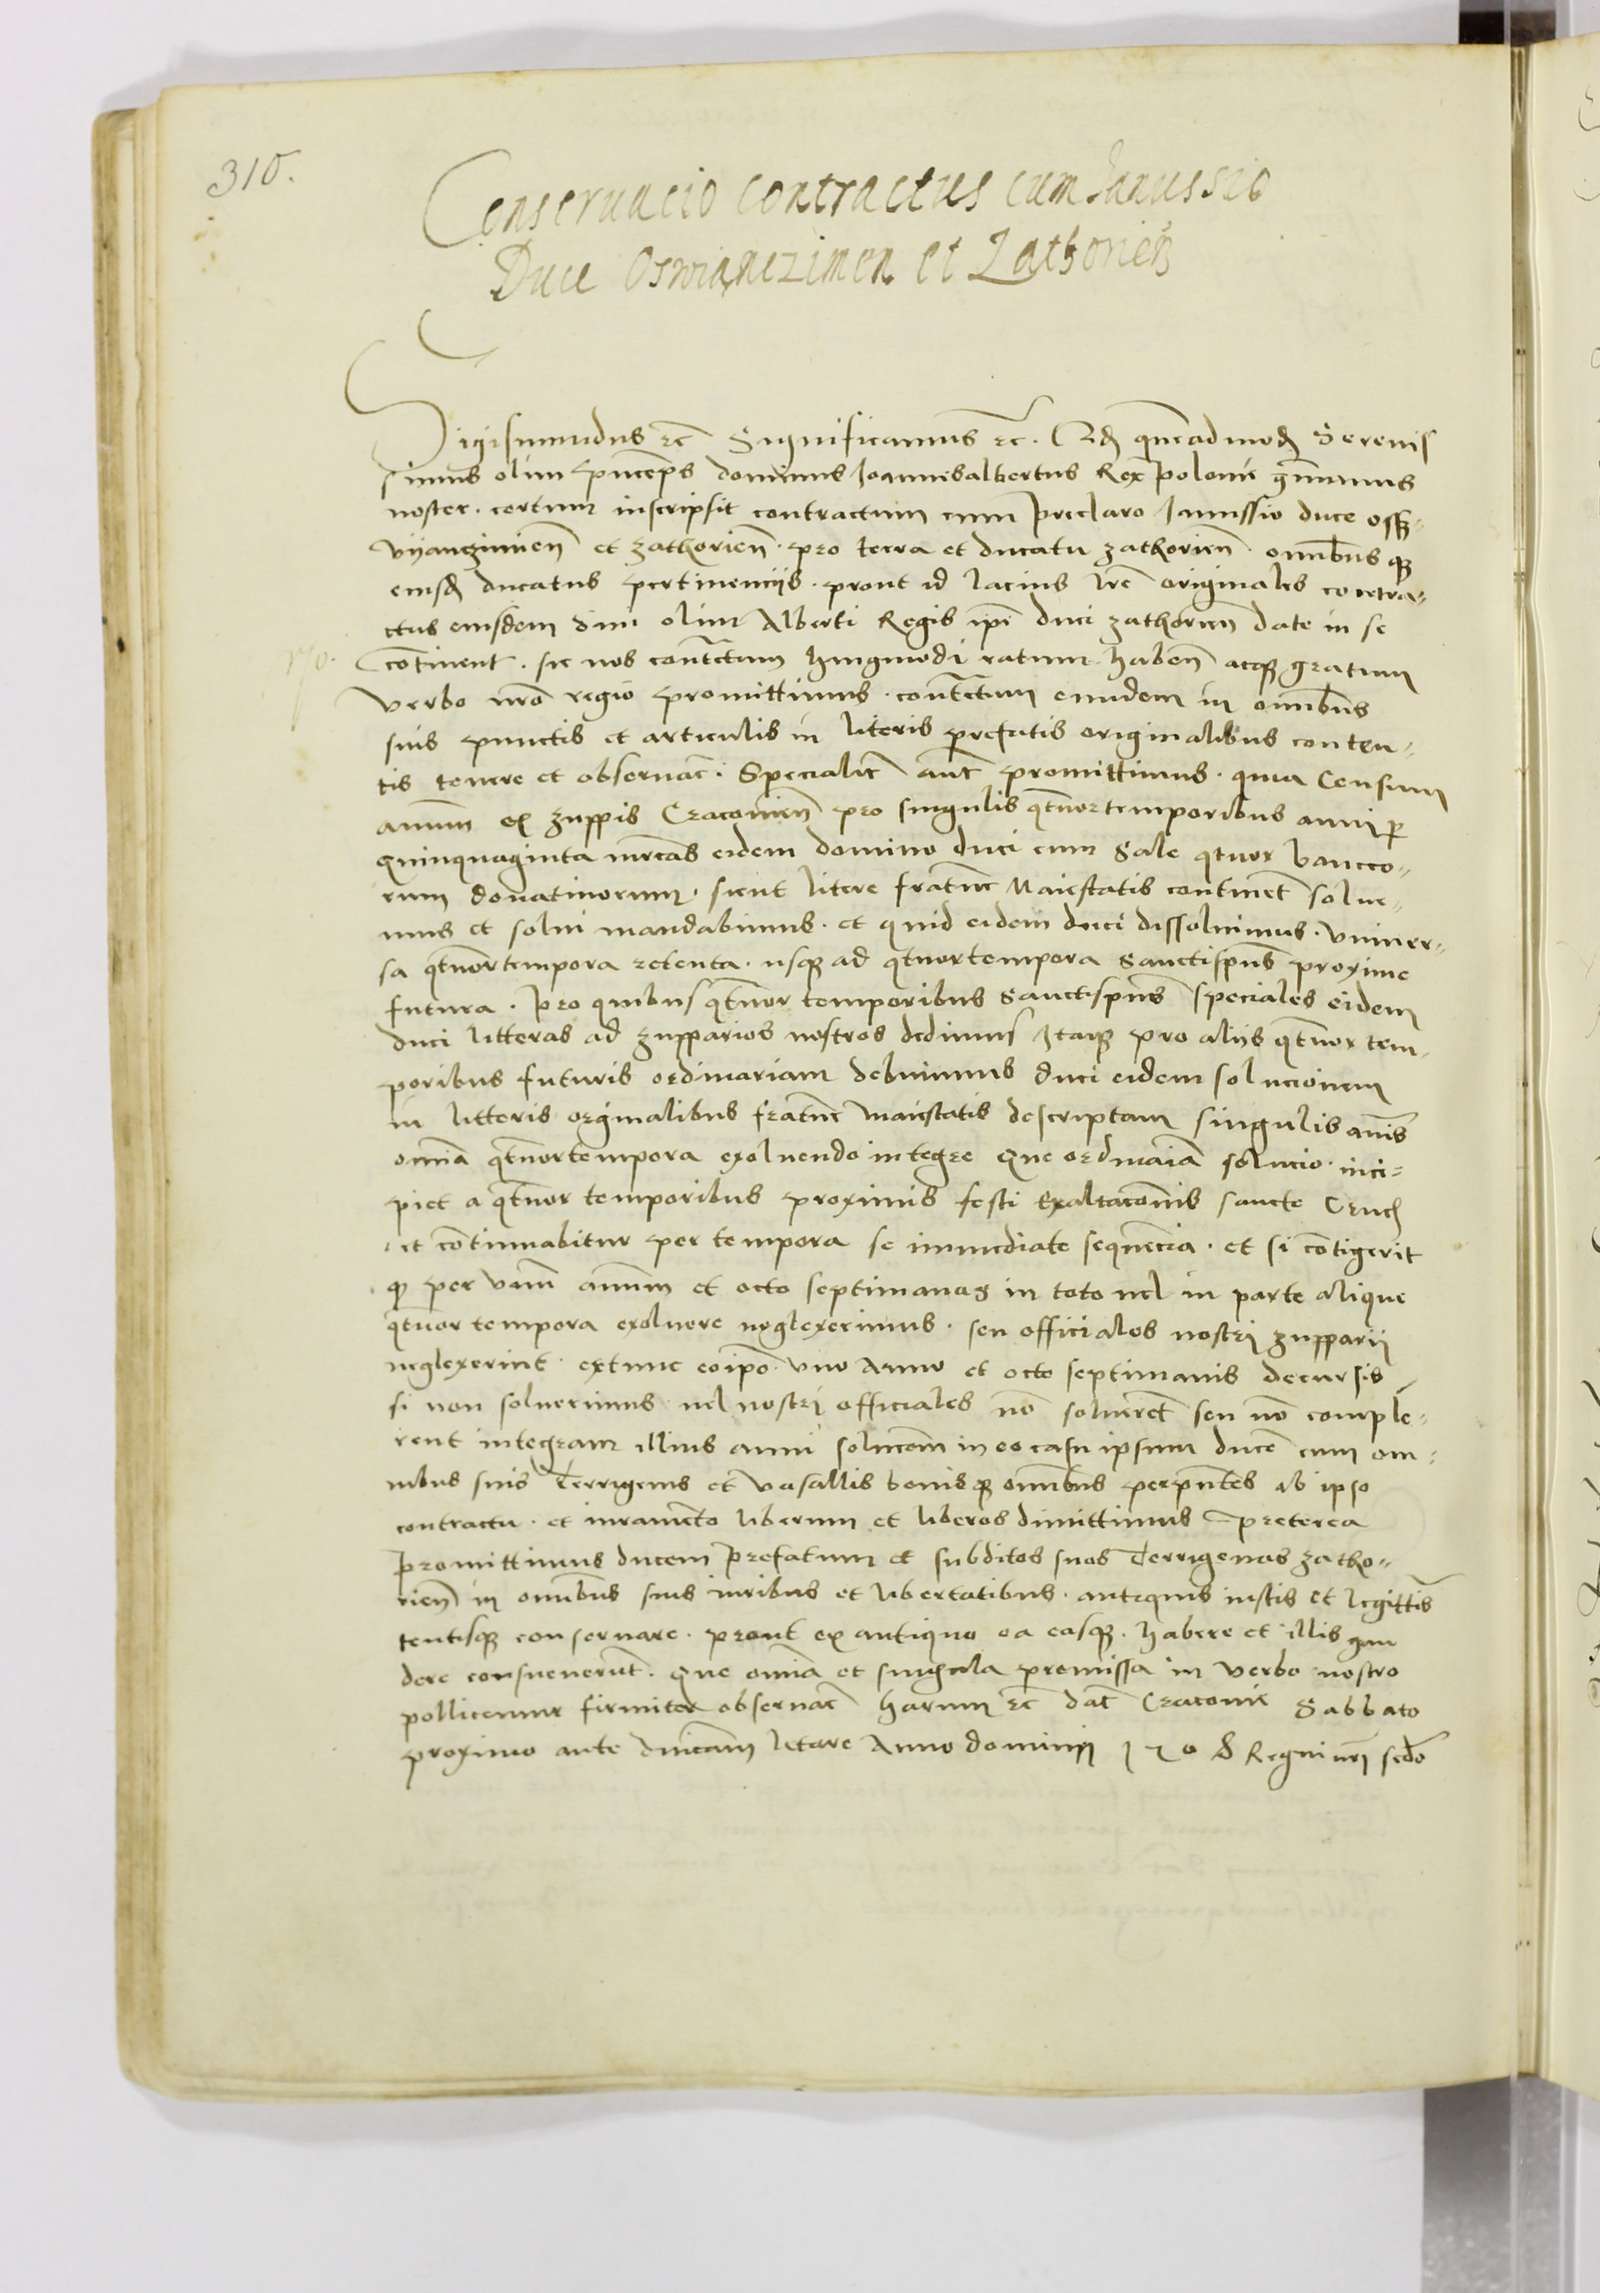 310.
Conservacio contractus cum Janussio
Duce Oswianczimen et Zathorien̄
Sigismundus etc̄ Significamus etc̄. Qd̄ quēadmod̄ Serenis
simus olim princeps dominus Joannesalbertus Rex polonie gīmanus
noster. certum inscripsit contractum cum preclaro Janussio duce oss-
vijanczimien̄ et zathorien̄. pro terra et ducatu zathorien̄ omībus q̨
eiusd̄ ducatus pertinencijs. prout id lacius lr̄e originales contra-
ctus eiusdem dni olim Alberti Regis ip̄i duci zathorien̄ date in se
cōtinent. sic nos contc̄tum huiusmodi ratum haben̄ atq̨ gratum
verbo nrō regio promittimus. contc̄tum eundem in omībus
suis punctis et articulis in literis prefatis originalibus conten-
tis tenere et observar̄. Specialit̄ aut̄ promittimus. quia Censum
annuum ex zuppis Cracovien̄ pro singulis qt̄uortemporibus anni p̄
quinquaginta mr̄cas eidem domino duci cum sale qtuor bancco-
rum donativorum. sicut litere frat̄ne Maiestatis continēt solve-
mus et solvi mandabimus. et quid eidem duci dissolvimus. univer-
sa qt̄uortempora retenta. usq̨ ad qtuortempora Sanctisp̄us proxime
futura. Pro quibus qt̄uor temporibus Sanctisp̄us speciales eidem
duci litteras ad zupparios nostros dedimus Itaq̨ pro alijs qt̄uor tem-
poribus futuris ordinariam debuimus duci eidem solucionem
in litteris orginalibus frat̄ne maiestatis descriptam singulis anīs
omīa qt̄uortempora exolvendo integre Que ordinaīa solucio. inci-
piet a qt̄uor temporibus proximis festi Exaltacōnis sancte Crucis
et cōtinuabitur per tempora se immediate sequēcia. et si cōtigerit
q̨ per unū annum et octo septimanas in toto vel in parte alique
qtuor tempora exolvere neglexerimus. seu officiales nostri zupparij
neglexerint. extunc eoipō. uno Anno et octo septimanis decursis
si non solverimus vel nostri officiales nō solverēt seu nō comple-
rent integram illius anni solucōem in eo casu ipsum ducē cum om-
nibus suis Terrigenis et vasallis bonisq̨ omībus perpn̄tes ab ipso
contractu. et iuramēto liberum et liberos dimittimus Preterea
promittimus ducem prefatum et subditos suos Terrigenas zatho-
rien̄ in omībus suis iuribus et libertatibus. antiquis iustis et legittīs
tentisq̨ conservare. prout ex antiquo ea easq̨. habere et illis gau
dere consueverūt. Que omīa et singula premissa in verbo nostro
pollicemur firmiter observar̄ Harum etc̄ dat̄ Cracovie Sabbato
proximo ante dnīcam letare Anno domini 1508 Regni nrī scdō